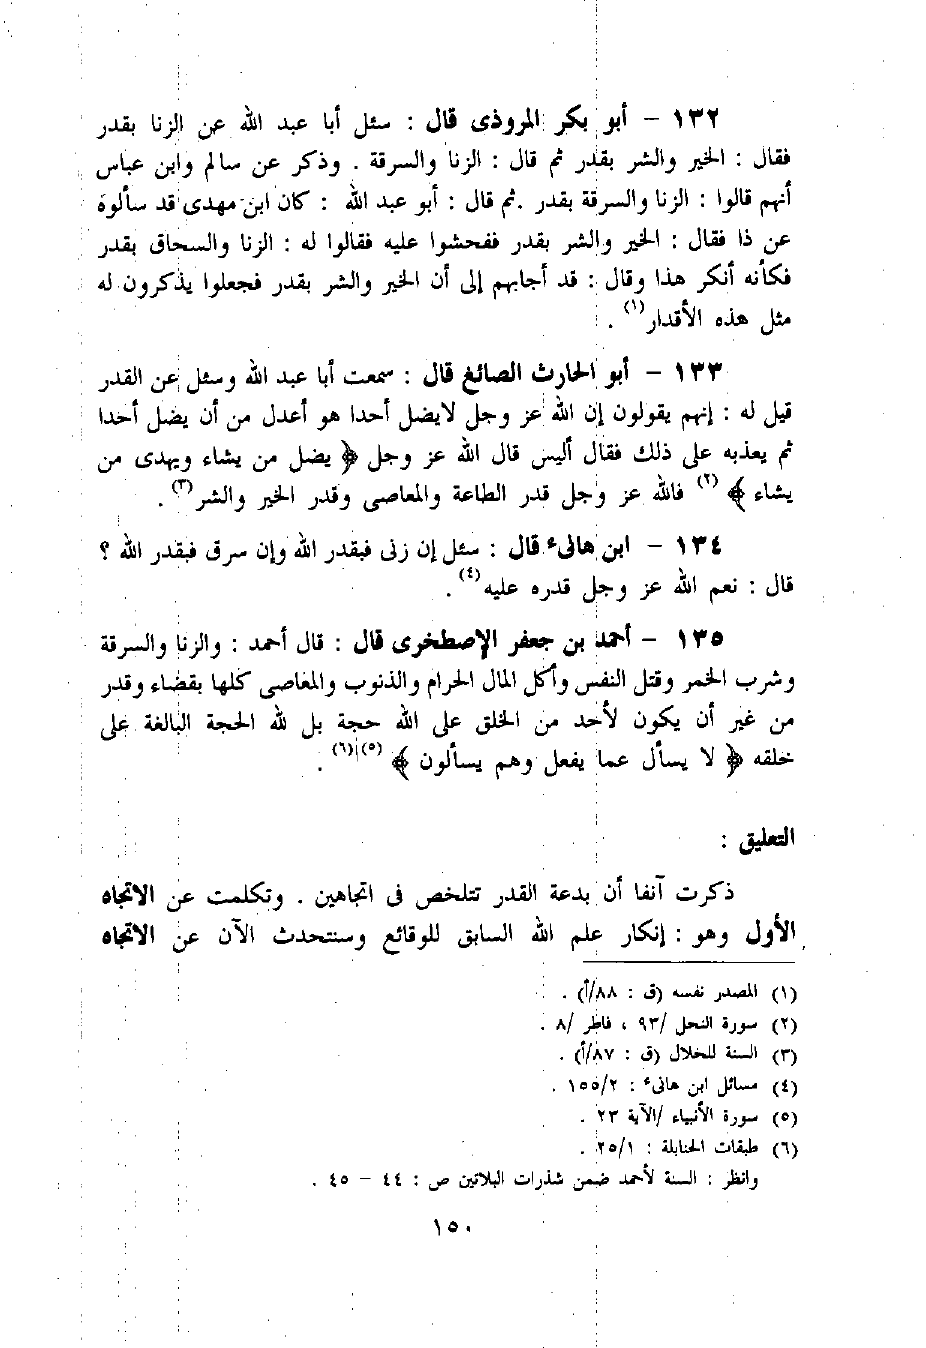 ١٣٢ – أبو بكر المروذى قال : سئل أبا عبد الله عن الزنا بقدر
فقال : الخير والشر بقدر ثم قال : الزنا والسرقة . وذكر عن سالم وابن عباس
أنهم قالوا : الزنا والسرقة بقدر . ثم قال : أبو عبد الله : كان ابن مهدى قد سألوه
عن ذا فقال : الخير والشر بقدر ففحشوا عليه فقالوا له : الزنا والسحاق بقدر
فكأنه أنكر هذا وقال : قد أجابهم إلى أن الخير والشر بقدر فجعلوا يذكرون له
مثل هذه الأقدار(١) .
١٣٣ – أبو الحارث الصائغ قال : سمعت أبا عبد الله وسئل عن القدر
قيل له : إنهم يقولون إن الله عز وجل لايضل أحدا هو أعدل من أن يضل أحدا
ثم يعذبه على ذلك فقال أليس قال الله عز وجل ﴿ يضل من يشاء ويهدى من
يشاء ﴾ (٢) فالله عز وجل قدر الطاعة والمعاصى وقدر الخير والشر(٣) .
١٣٤ – ابن هانىء قال : سئل إن زنى فبقدر الله وإن سرق فبقدر الله ؟
قال : نعم الله عز وجل قدره عليه(٤) .
١٣٥ – أحمد بن جعفر الإصطخرى قال : قال أحمد : والزنا والسرقة
وشرب الخمر وقتل النفس وأكل المال الحرام والذنوب والمعاصى كلها بقضاء وقدر
من غير أن يكون لأحد من الخلق على الله حجة بل لله الحجة البالغة على
خلقه ﴿ لا يسأل عما يفعل وهم يسألون ﴾ (٥)(٦) .
التعليق :
ذكرت آنفا أن بدعة القدر تتلخص فى اتجاهين . وتكلمت عن الاتجاه
الأول وهو : إنكار علم الله السابق للوقائع وسنتحدث الآن عن الاتجاه
(١) المصدر نفسه (ق : ٨٨/أ) .
(٢) سورة النحل /٩٣ ، فاطر /٨ .
(٣) السنة للخلال (ق : ٨٧/أ) .
(٤) مسائل ابن هانىء : ١٥٥/٢ .
(٥) سورة الأنبياء /الآية ٢٣ .
(٦) طبقات الحنابلة : ٢٥/١ .
وانظر : السنة لأحمد ضمن شذرات البلاتين ص : ٤٤ – ٤٥ .
١٥٠